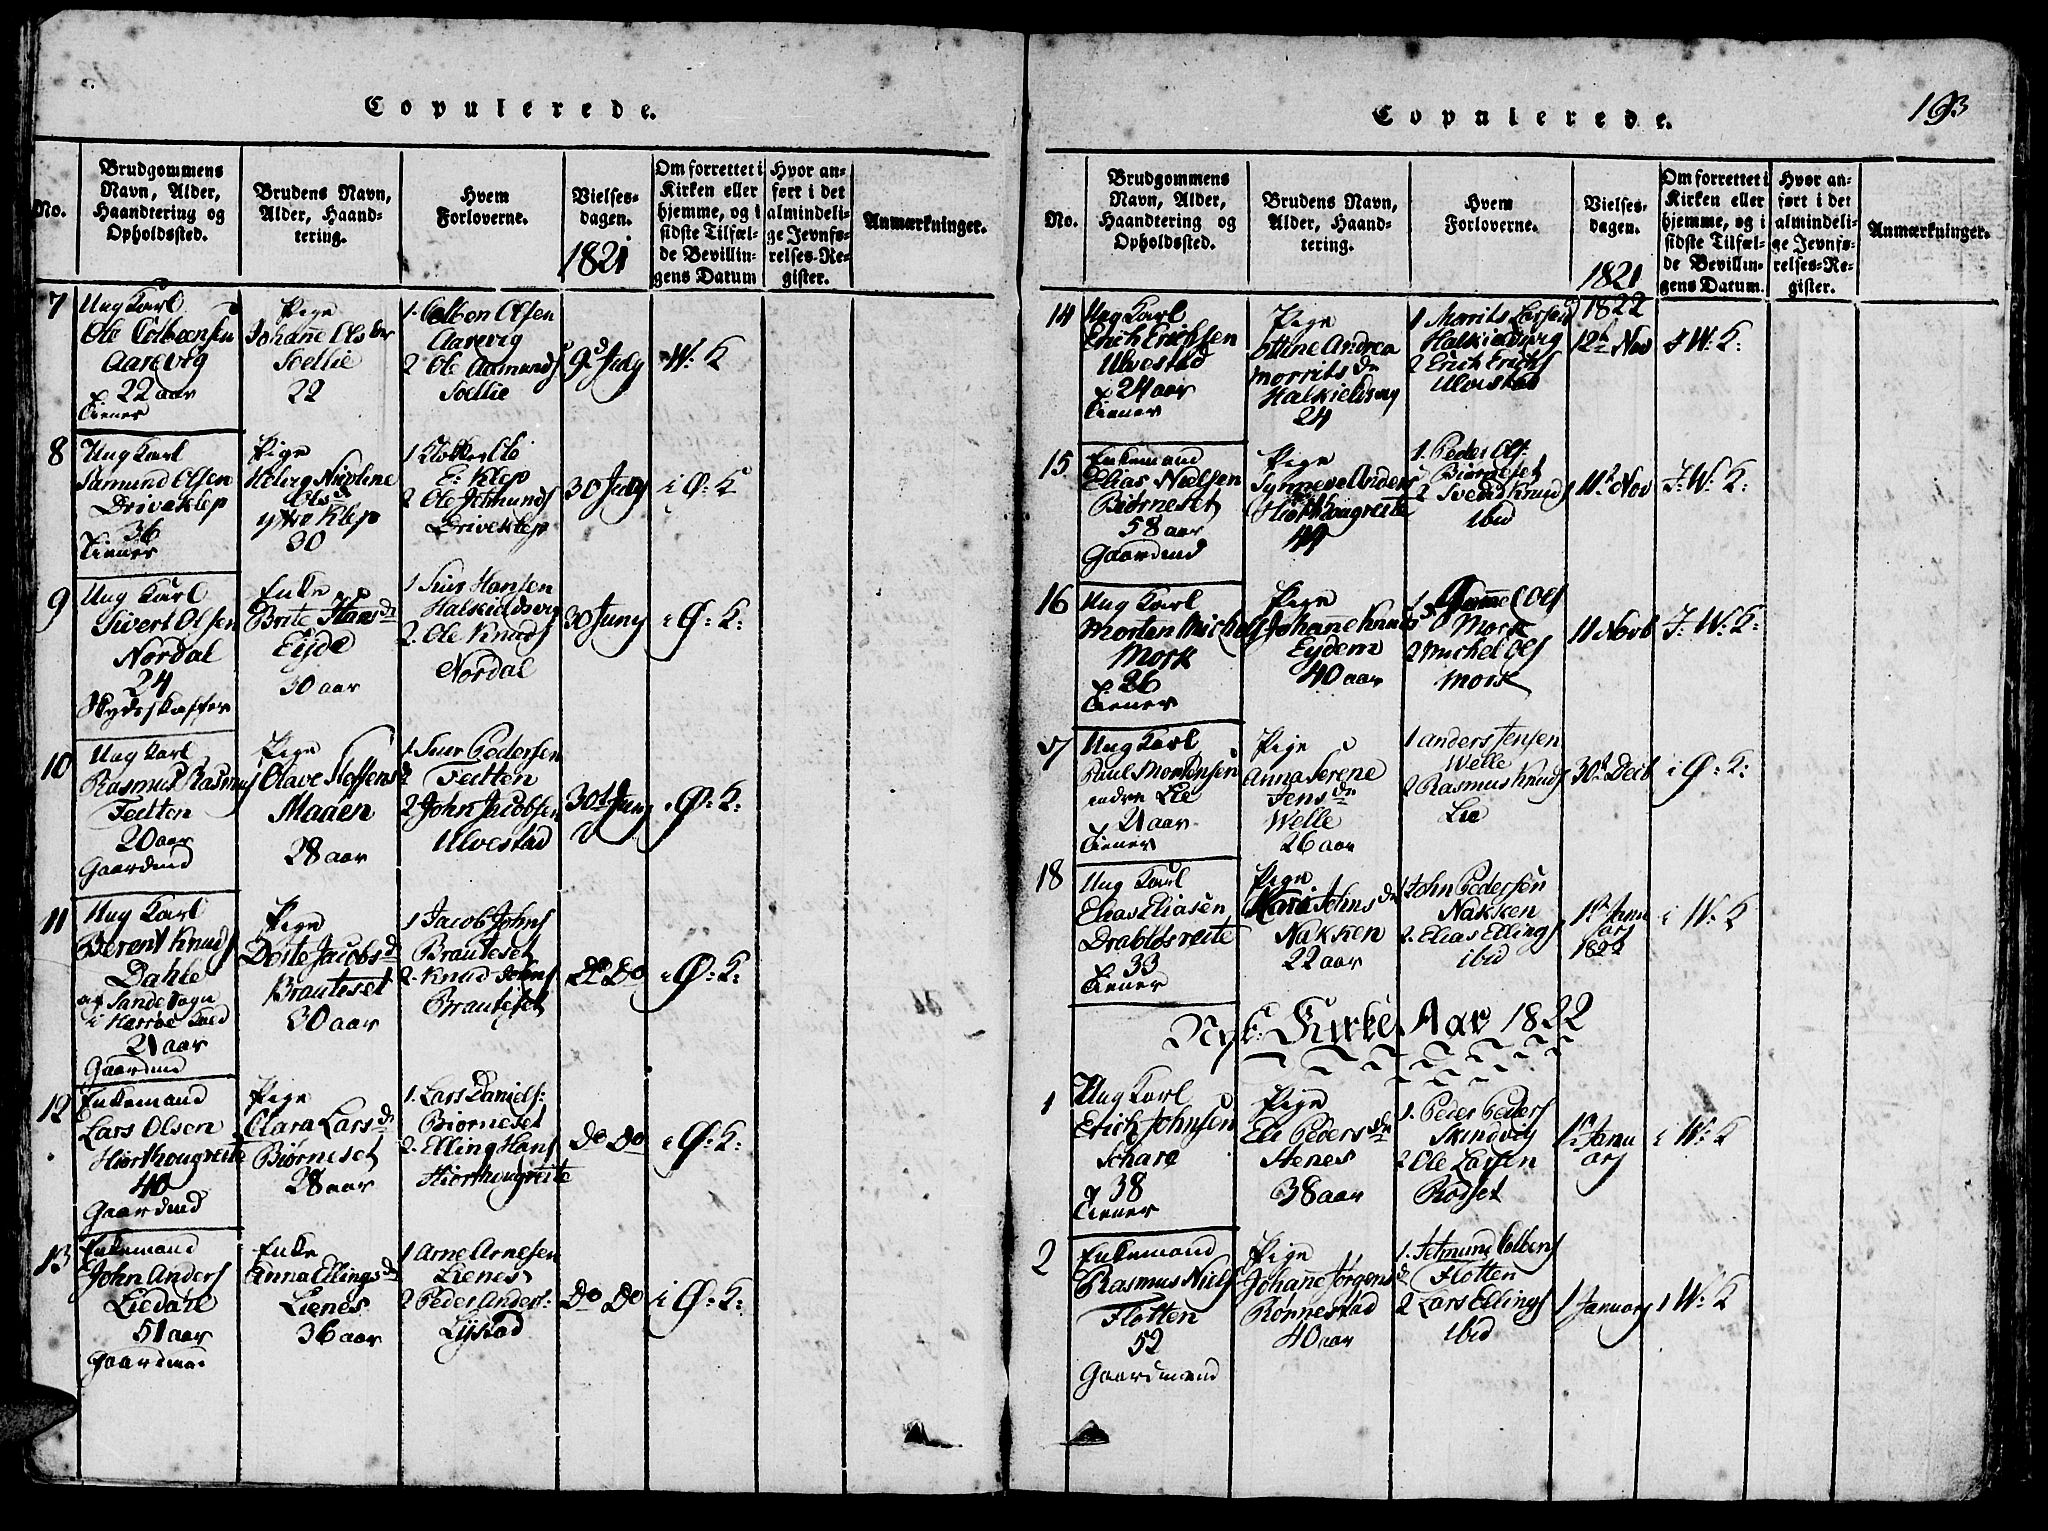 Copulerede.
No.
Brudgommens
Navn, Alder,
Haandtering og
Opholdssted.
Brudens Navn,
Alder, Haand-
tering.
Hvem
Forloverne.
Vielses-
dagen.
1821
Om forrettet i
Kirken eller
hjemme, og i
sidste Tilfæl-
de Bevillin-
gens Datum
Hvor an-
ført i det
almindeli-
ge Jevnfø-
relses-Re-
gister.
Anmærkninger.
7
Ung Karl
Ole Colbensen
Aarevig
22 aar
Tiener
Pige
Johane Olsdr
Soellie
22
1. Colben Olsen
Aarevig
2 Ole Aamunds
Soellie
9d July
W: K
8
Ung Karl
Samund Olsen
Driveklep
36
Tiener
Pige
Helvig Nicoline
Olsd
ytre Klep
30
1 Klokker Ole
E: Klep
2 Ole Jetmunds
Driveklep
30 July
i Ø: K
9
Ung Karl
Sivert Olsen
Nordal
24
Skydsskaffer
Enke
Brite Hansdr
Eyde
30 aar
1 Siur Hansen
Halskieldsvig
2. Ole Knuds
Nordal
30 Juny
i Ø: K:
10
Ung Karl
Rasmus Rasmus
Fedtten
20 aar
Gaardmd
Pige
Olave Stoffensdr
Maaen
28 aar
1 Siur Pedersen
Fedtten
2 John Jacobsen
Ulvestad
30d Juny
i Ø: K:
11
Ung Karl
Berent Knuds
Dahle
af Sande Sogn
i Herrøe Gield
21 aar
Gaardmd
Pige
Dorte Jacobsd
Brauteset
30 aar
1 Jacob Johns
Brauteset
2. Knud Johns
Brauteset
Do Do
i Ø: K:
12
Enkemand
Lars Olsen
Hiorthougreite
40
Gaardmd
Pige
Clara Larsd
Biørneset
28 aar
1. Lars Daniels:
Biorneset
2. Elling Hans
Hiorthougreite
Do Do
i Ø: K:
13
Enkemand
John Anders
Liedahl
51 aar
Gaardma:
Enke
Anna Ellingsd
Lienes
36 aar
1 Arne Arnesen
Lienes
2 Peder Anders:
Lystad
Do Do
i Ø: K:
193
Copulerede.
No.
Brudgommens
Navn, Alder,
Haandtering og
Opholdssted.
Brudens Navn,
Alder, Haand-
tering.
Hvem
Forloverne.
Vielses-
dagen.
1821
1822
Om forrettet i
Kirken eller
hjemme, og i
sidste Tilfæl-
de Bevillin-
gens Datum.
Hvor an-
ført i det
almindeli-
ge Jevnfø-
relses-Re-
gister.
Anmærkninger.
14
Ung Karl
Erich Erichsen
Ulvestad
24 aar
Tiener
Pige
Ottine Andrea
Morritsdr
Halkieldsvig
24
1 Morrits Larsen
Halkieldsvig
2 Erich Erichs
Ulvestad
12t Nov
i W: K:
15
Enkemand
Elias Nielsen
Biørneset
58 aar
Gaardmd
Pige
Synneve Anders
Hiorthougreite
49
1. Peder Ols
Biorneset
2 Svend Knuds
ibid
11t Nov
I: W: K:
16
Ung Karl
Morten Michels
Mork
26
Tiener
Pige
Johane Knudsd
Eydem
40 aar
1. Gammel Ols
Mork
2 Michel Ols
Mork
11 Novb
I: W: K:
17
Ung Karl
Paul Mortensen
indre Lie
21 aar
Tiener
Pige
Anna Serene
Jensdr
Welle
26 aar
1 Anders Jensen
Welle
2 Rasmus Knuds
Lie
30t Decb
i Ø: K:
18
Ung Karl
Elias Eliasen
Drabløsreite
33
Tiener
Pige
Mari Johnsdr
Nakken
22 aar
1 John Pedersen
Nakken
2. Elias Ellings
ibid
1te Janu
arj
1822
i W: K
Nyt Kirke Aar 1822
1
Ung Karl
Erich Johnsen
Schare
38
Tiener
Pige
Eli Pedersdr
Stenes
38 aar
1. Peder Peders
Skindvig
2 Ole Larsen
Rodset
1te Janu
arj
i W: K
2
Enkemand
Rasmus Niels
Flotten
52
Gaardmand
Pige
Johane Jørgensd
Ronnestad
40 aar
1. Jetmund Colbens
Flotten
2 Lars Ellings
ibid
1 Januarj
i W: K